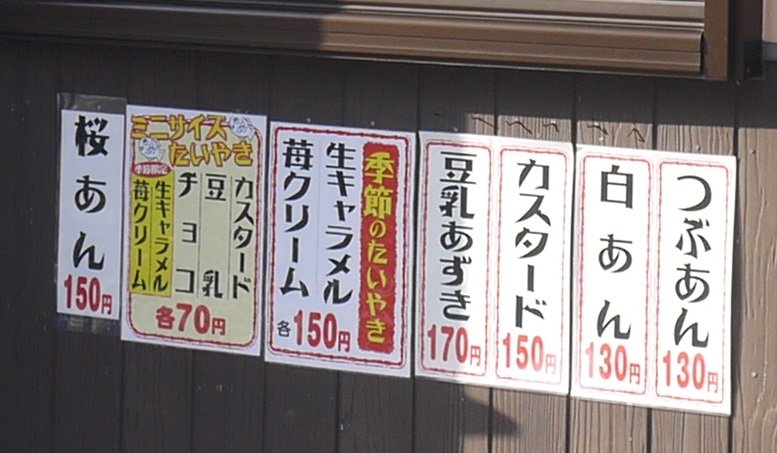 つぶあん
130円
白あん
130円
カスタード
150円
豆乳あずき
170円
季節のたいやき
生キャラメル
苺クリーム
各150円
ミニサイズ
たいやき
カスタード
豆乳
チョコ
季節限定
生キャラメル
苺クリーム
各70円
桜あん
150円